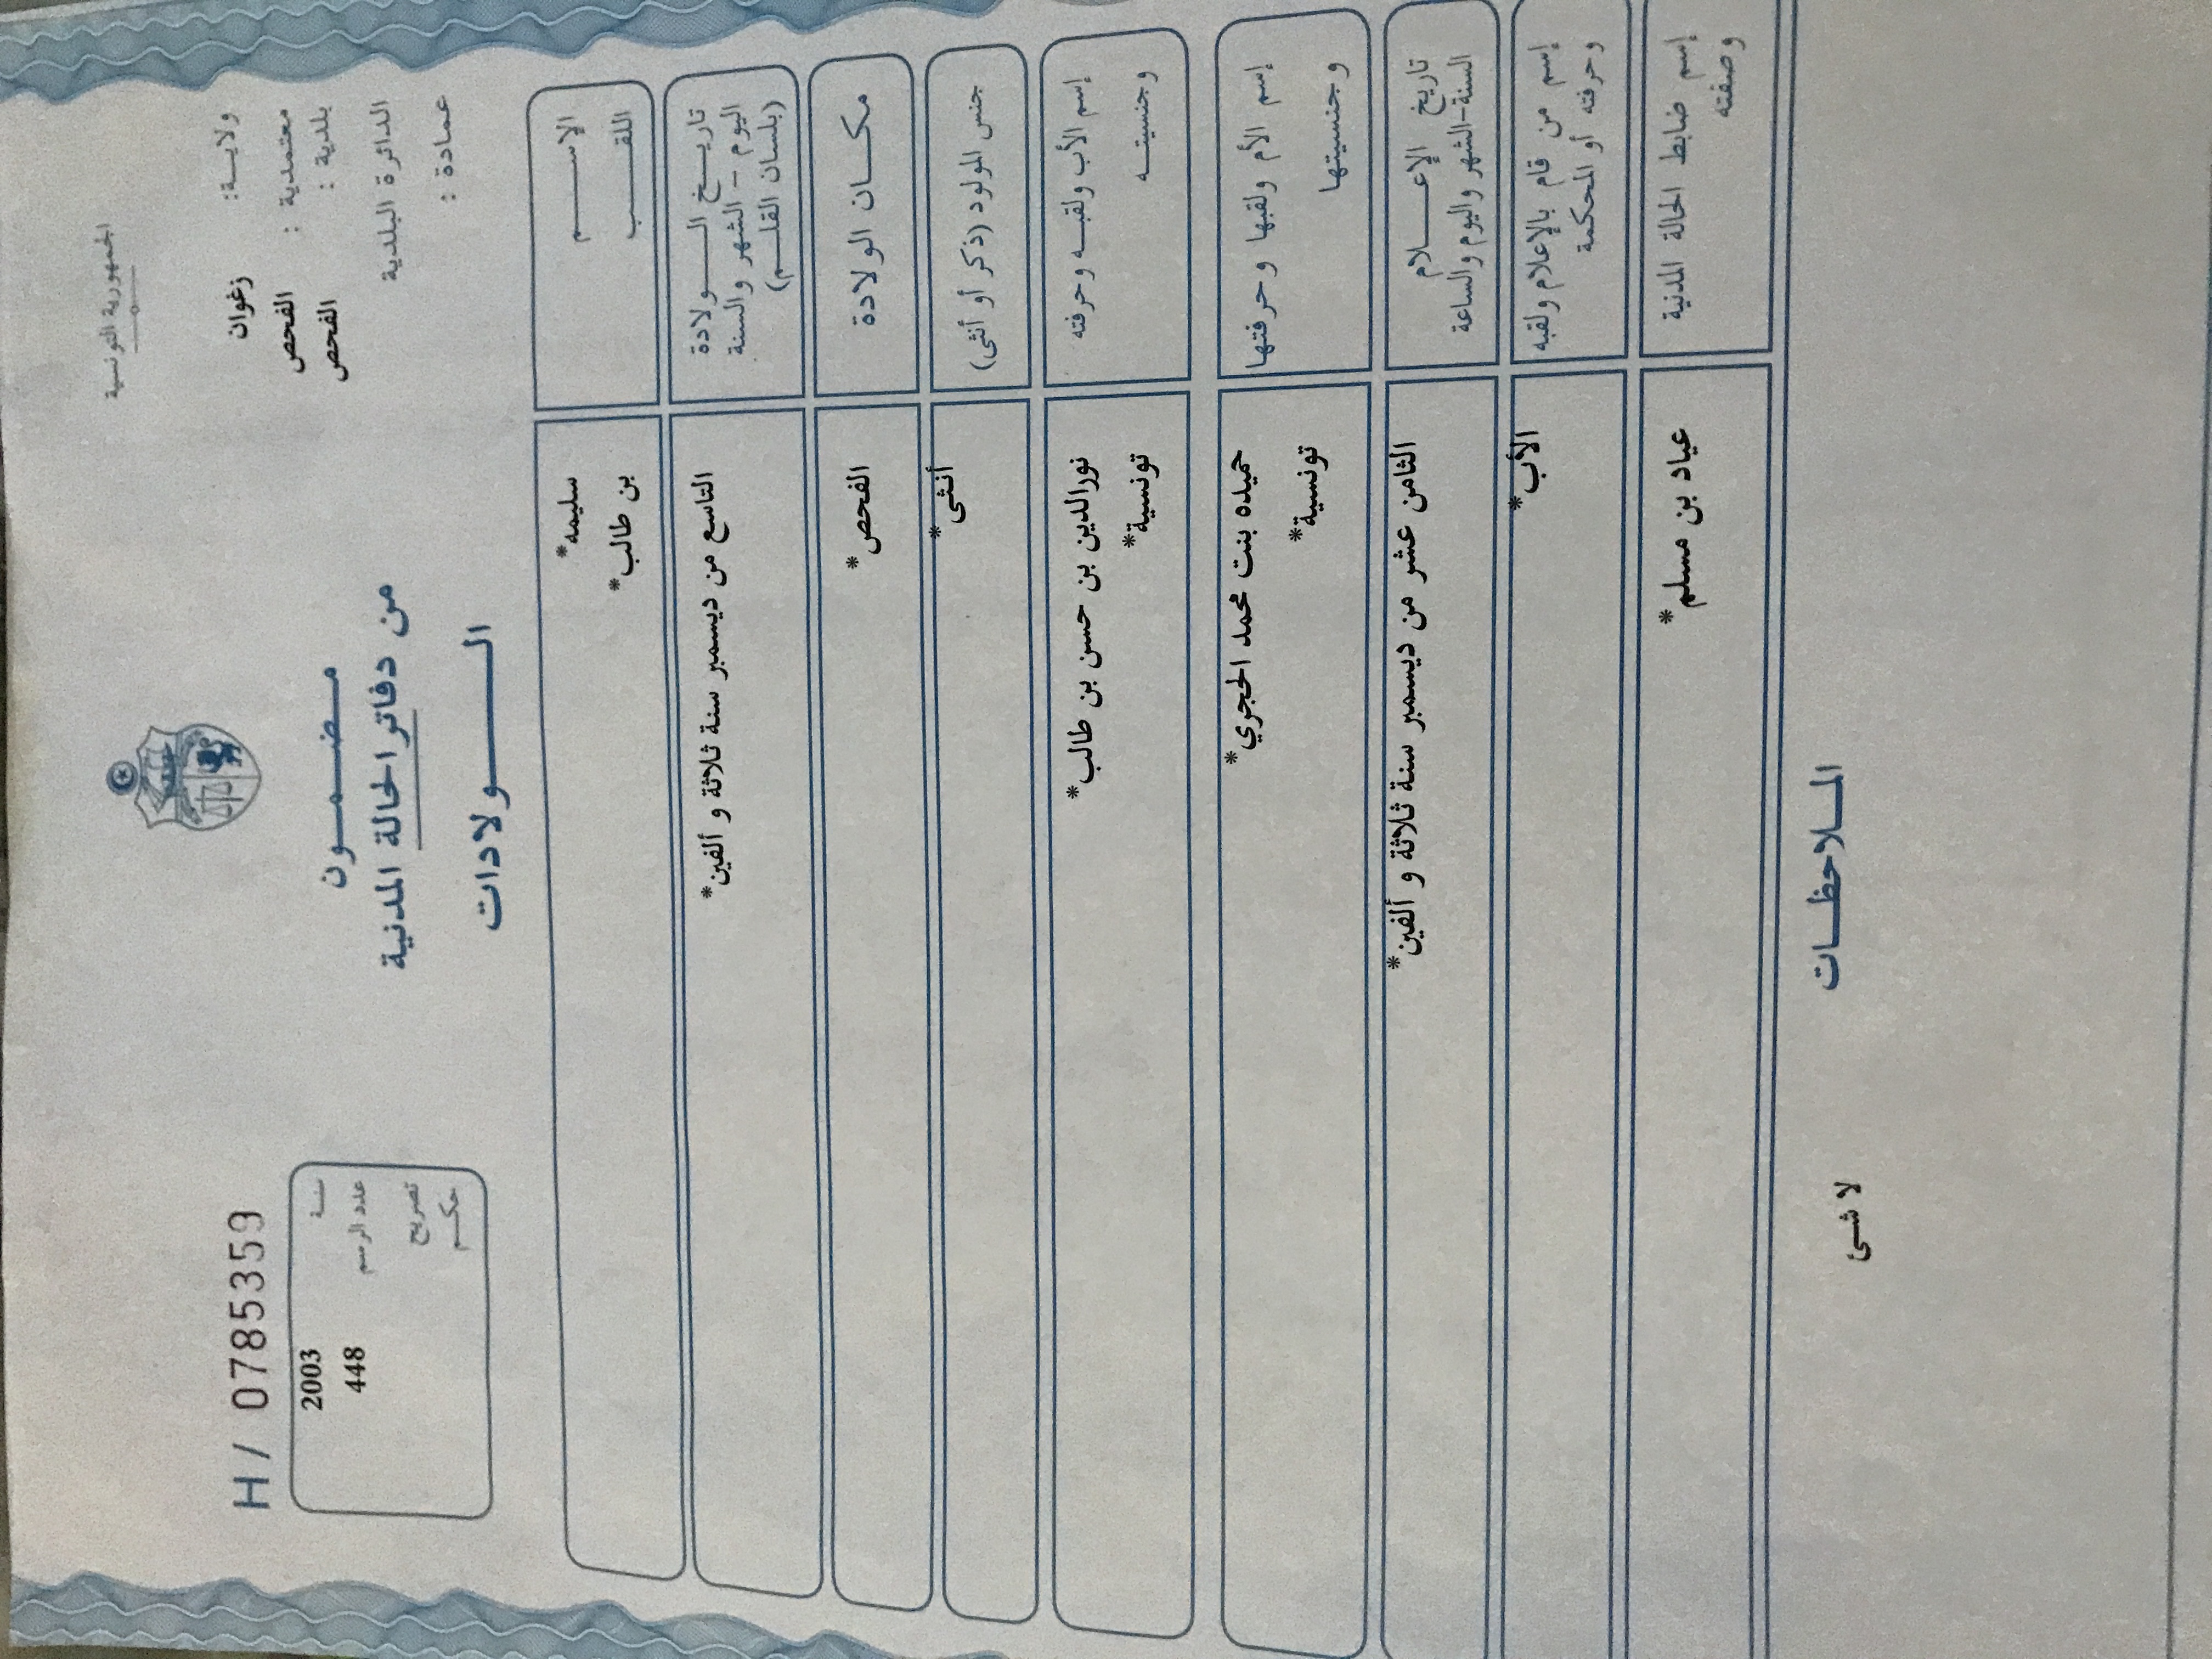 الجمهورية التونسية
ولاية: زغوان
معتمدية : الفحص
بلدية : الفحص
الدائرة البلدية
عمادة :
H / 0785359
سنة 2003
عدد الرسم 448
تصريح
حكم
مضمون
من دفاتر الحالة المدنية
الولادات
الإسم سليمه*
اللقب بن طالب*
تاريخ الولادة
اليوم - الشهر والسنة
(بلسان القلم)
التاسع من ديسمبر سنة ثلاثة و ألفين*
مكان الولادة الفحص*
جنس المولود (ذكر أو أنثى) أنثى*
إسم الأب ولقبه وحرفته نورالدين بن حسن بن طالب*
وجنسيته تونسية*
إسم الأم ولقبها وحرفتها حميده بنت محمد الحجري*
وجنسيتها تونسية*
تاريخ الإعلام
السنة-الشهر واليوم والساعة
الثامن عشر من ديسمبر سنة ثلاثة و ألفين*
إسم من قام بالإعلام ولقبه
وحرفته أو المحكمة
الأب*
إسم ضابط الحالة المدنية
وصفته
عياد بن مسلم*
الملاحظات
لا شئ